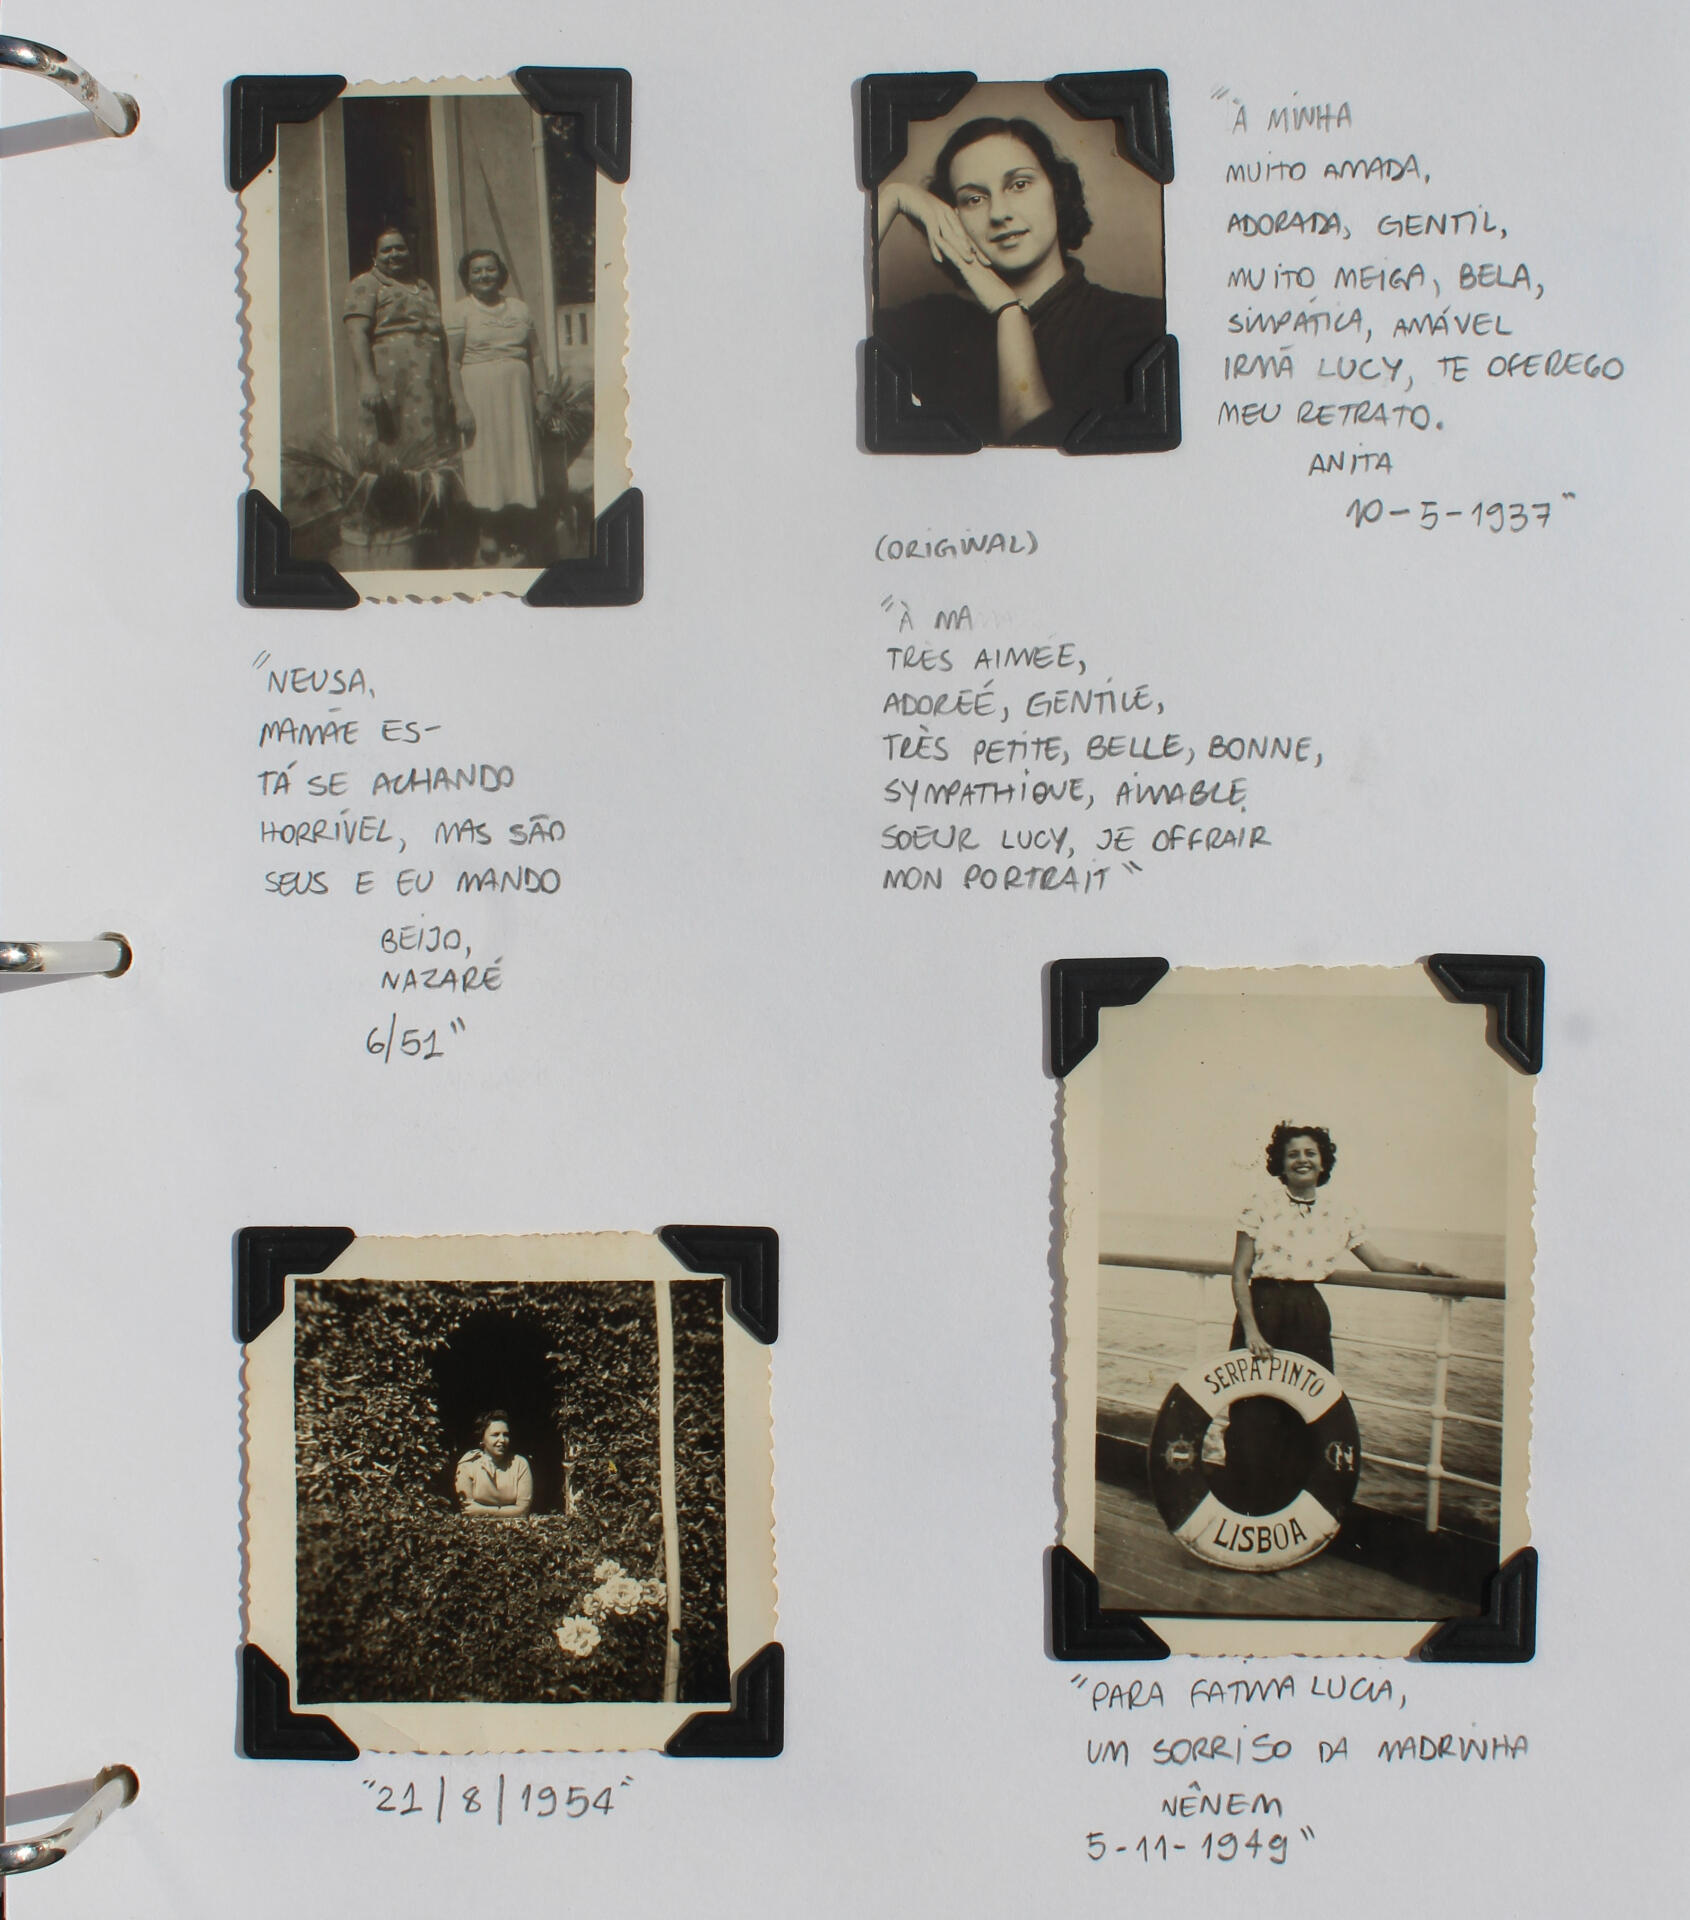 "NEUSA,
MAMÃE ES-
TÁ SE ACHANDO
HORRÍVEL, MAS SÃO
SEUS E EU MANDO
BEIJO,
NAZARÉ
6/51"
"À MINHA
MUITO AMADA,
ADORADA, GENTIL,
MUITO MEIGA, BELA,
SIMPÁTICA, AMÁVEL
IRMÃ LUCY, TE OFEREÇO
MEU RETRATO.
ANITA
10-5-1937"
(ORIGINAL)
"À MA
TRÈS AIMÉE,
ADOREÉ, GENTILE,
TRÈS PETITE, BELLE, BONNE,
SYMPATHIQUE, AIMABLE
SOEUR LUCY, JE OFFRAIR
MON PORTRAIT"
"21/8/1954"
SERPA PINTO
LISBOA
"PARA FATIMA LUCIA,
UM SORRISO DA MADRINHA
NÊNEM
5-11-1949"